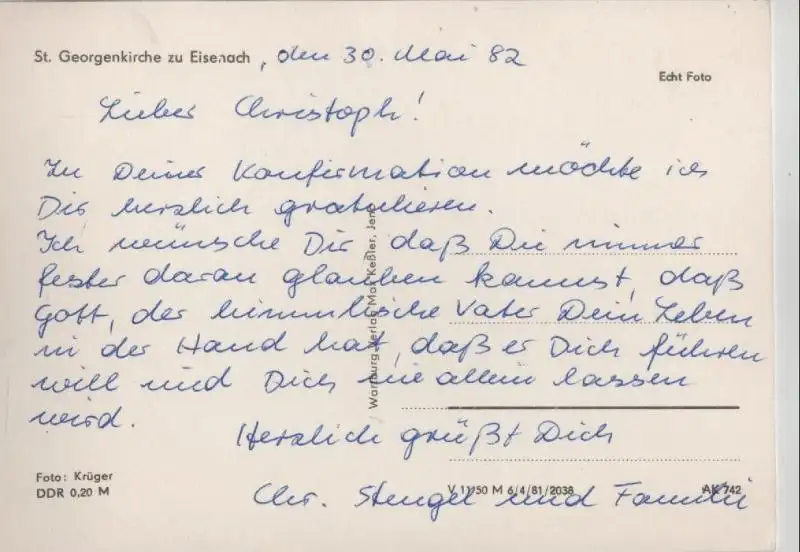 St. Georgenkirche zu Eisenach, den 30. Mai 82
Echt Foto
Lieber Christoph!
Zu Deiner Konfirmation möchte ich
Dir herzlich gratulieren.
Ich wünsche Dir daß Du immer
fester daran glauben kannst, daß
Gott, der himmlische Vater Dein Leben
in der Hand hat, daß er Dich führen
will und Dich nie allein lassen
wird.
Herzlich grüßt Dich
Chr. Stengel und Familie
Wartburg Verlag Max Keßler, Jena
Foto: Krüger
DDR 0,20 M
V 11/50 M 6/4/81/2038
AK 742